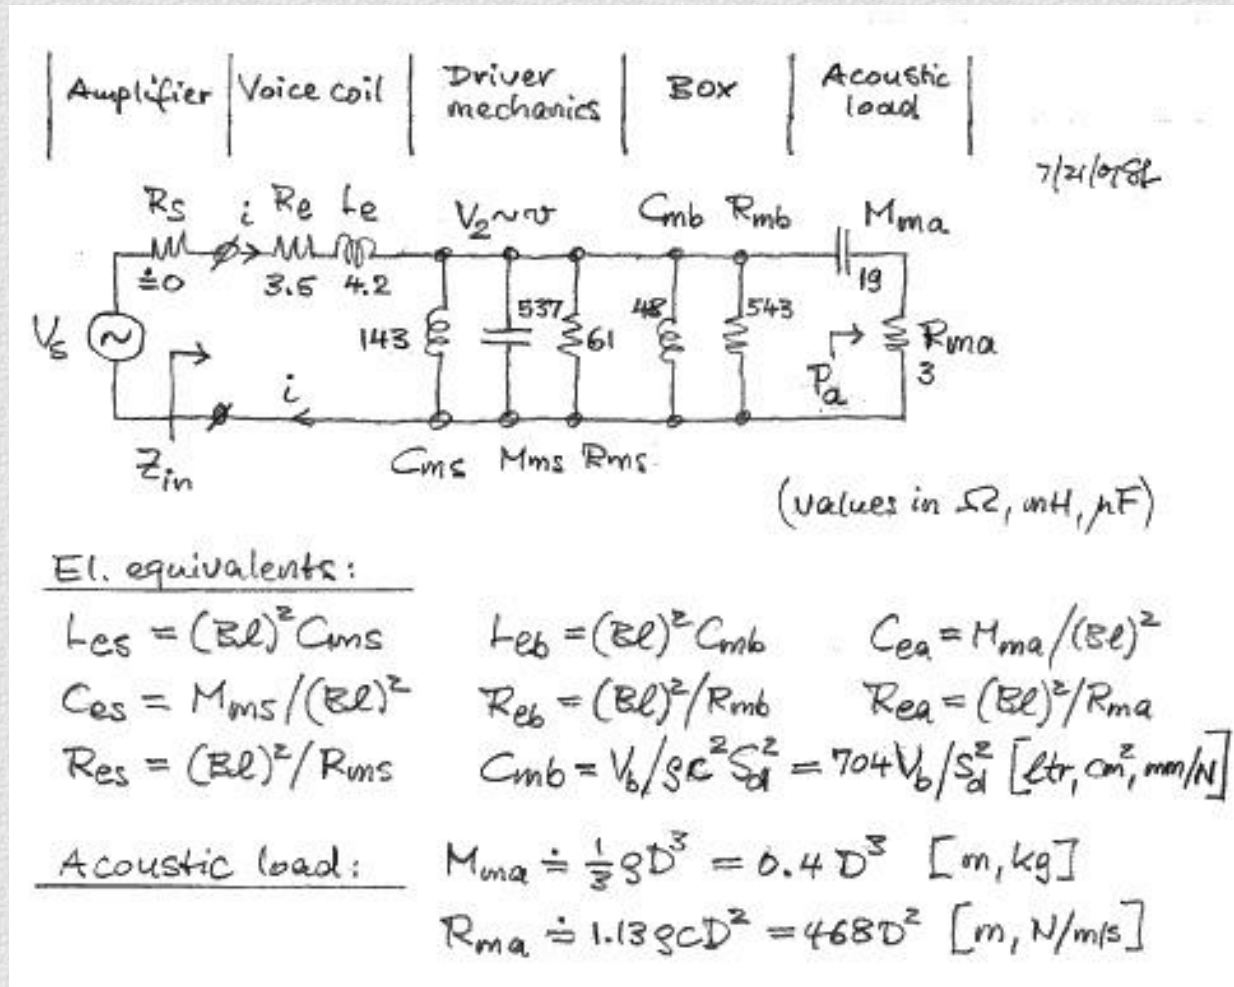 Amplifier Voice coil Driver mechanics Box Acoustic load
7/21/07 SL
Rs i Re Le V₂~v Cmb Rmb Mma
≐0 3.5 4.2 19
Vs 143 537 61 48 543 Rma
Pa 3
i
Zin Cms Mms Rms
(values in Ω, mH, μF)
El. equivalents:
Les = (Bl)² Cms Leb = (Bl)² Cmb Cea = Mma/(Bl)²
Ces = Mms/(Bl)² Reb = (Bl)²/Rmb Rea = (Bl)²/Rma
Res = (Bl)²/Rms Cmb = Vb/ρc²Sd² = 704Vb/Sd² [ltr, cm², mm/N]
Acoustic load: Mma ≐ 1/3 ρD³ = 0.4 D³ [m, kg]
Rma ≐ 1.13ρcD² = 468D² [m, N/m/s]